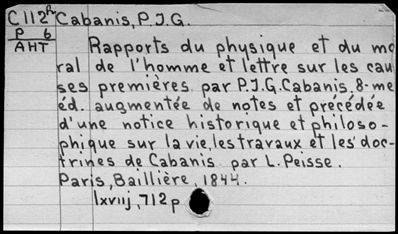 C112R Cabanis, P.J.G.
P 6
AHT Rapports du physique et du mo
ral de l'homme et lettre sur les cau
ses premières par P.J.G. Cabanis. 8-me
éd. augmentée de notes et précédée
d'une notice historique et philoso-
phique sur la vie, les travaux et les doc-
trines de Cabanis par L. Peisse.
Paris, Baillière, 1844.
lxviij, 712 p